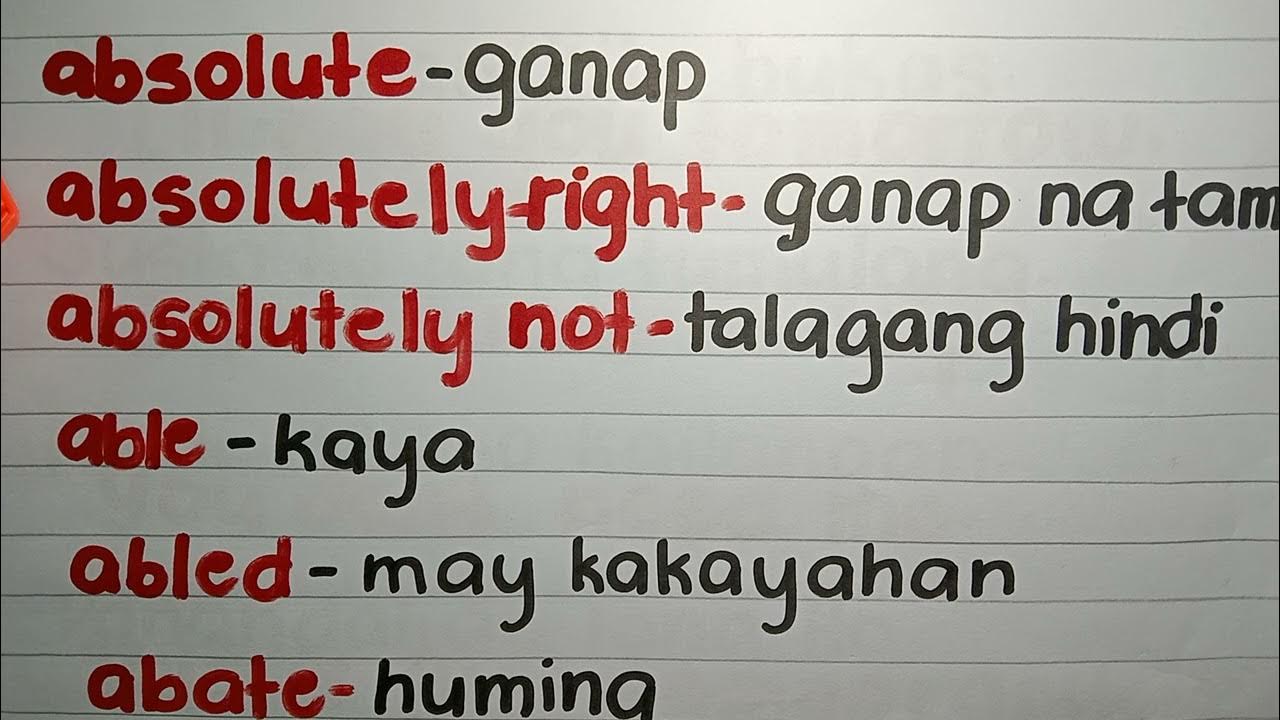 absolute-ganap
absolutely right- ganap na tam
absolutely not-talagang hindi
able -kaya
abled - may kakayahan
abate- huming